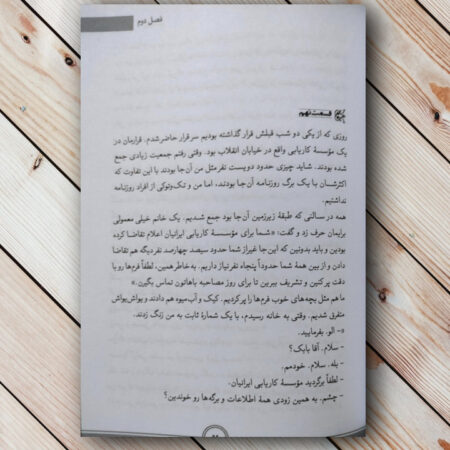 فصل دوم
قسمت نهم
روزی که از یکی دو شب قبلش قرار گذاشته بودیم سر قرار حاضر شدم. قرارمان در
یک مؤسسهٔ کاریابی واقع در خیابان انقلاب بود. وقتی رفتم جمعیت زیادی جمع
شده بودند. شاید چیزی حدود دویست نفر مثل من آن‌جا بودند با این تفاوت که
اکثرشان با یک برگ روزنامه آن‌جا بودند، اما من و تک‌وتوکی از افراد روزنامه
نداشتیم.
همه در سالنی که طبقهٔ زیرزمین آن‌جا بود جمع شدیم. یک خانم خیلی معمولی
برایمان حرف زد و گفت: «شما برای مؤسسهٔ کاریابی ایرانیان اعلام تقاضا کرده
بودین و باید بدونین که این‌جا غیر از شما حدود سیصد چهارصد نفر دیگه هم تقاضا
دادن و از بین همهٔ شما حدوداً پنجاه نفر نیاز داریم. به خاطر همین، لطفاً فرم‌ها رو با
دقت پر کنین و تشریف ببرین تا برای روز مصاحبه باهاتون تماس بگیرن.»
ما هم مثل بچه‌های خوب فرم‌ها را پر کردیم. کیک و آب‌میوه هم دادند و یواش‌یواش
متفرق شدیم. وقتی به خانه رسیدم، با یک شمارهٔ ثابت به من زنگ زدند.
«- الو. بفرمایید.
- سلام. آقا بابک؟
- بله. سلام. خودمم.
- لطفاً برگردید مؤسسهٔ کاریابی ایرانیان.
- چشم. به همین زودی همهٔ اطلاعات و برگه‌ها رو خوندین؟